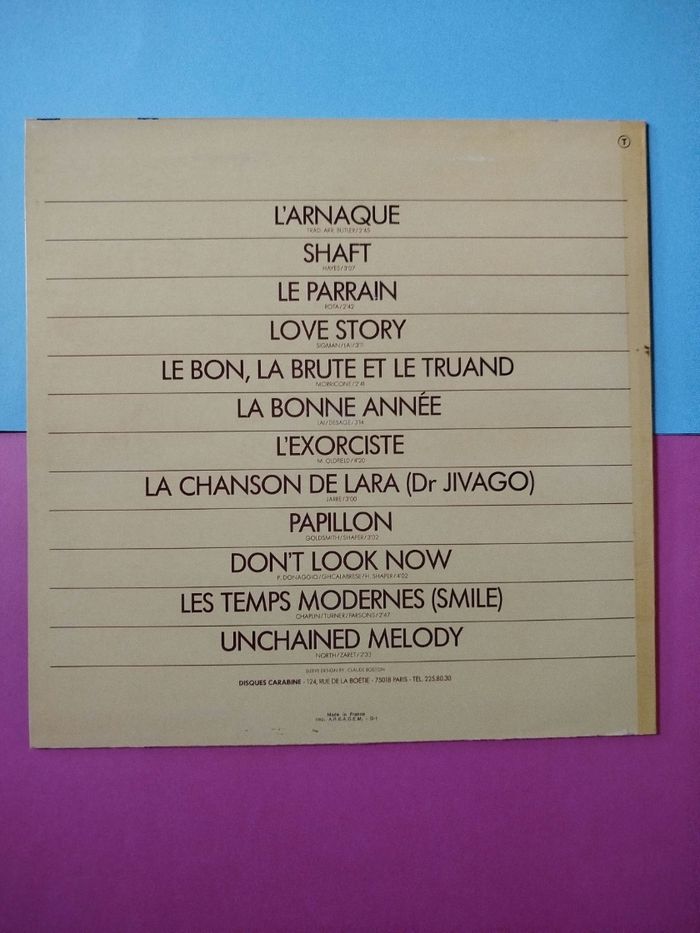 T
L'ARNAQUE
TRAD. ARR. BUTLER/2'45
SHAFT
HAYES/3'07
LE PARRAIN
ROTA/2'42
LOVE STORY
SIGMAN/LAI/3'11
LE BON, LA BRUTE ET LE TRUAND
MORRICONE/2'41
LA BONNE ANNÉE
LAI/DESAGE/3'14
L'EXORCISTE
M. OLDFIELD/4'20
LA CHANSON DE LARA (Dr JIVAGO)
JARRE/3'00
PAPILLON
GOLDSMITH/SHAPER/3'02
DON'T LOOK NOW
P. DONAGGIO/GHCALABRESE/H. SHAPER/4'02
LES TEMPS MODERNES (SMILE)
CHAPLIN/TURNER/PARSONS/2'47
UNCHAINED MELODY
NORTH/ZARET/2'33
SLEEVE DESIGN BY: CLAUDE BOSTON
DISQUES CARABINE - 124, RUE DE LA BOÉTIE - 75018 PARIS - TÉL. 225.80.30
Made in France